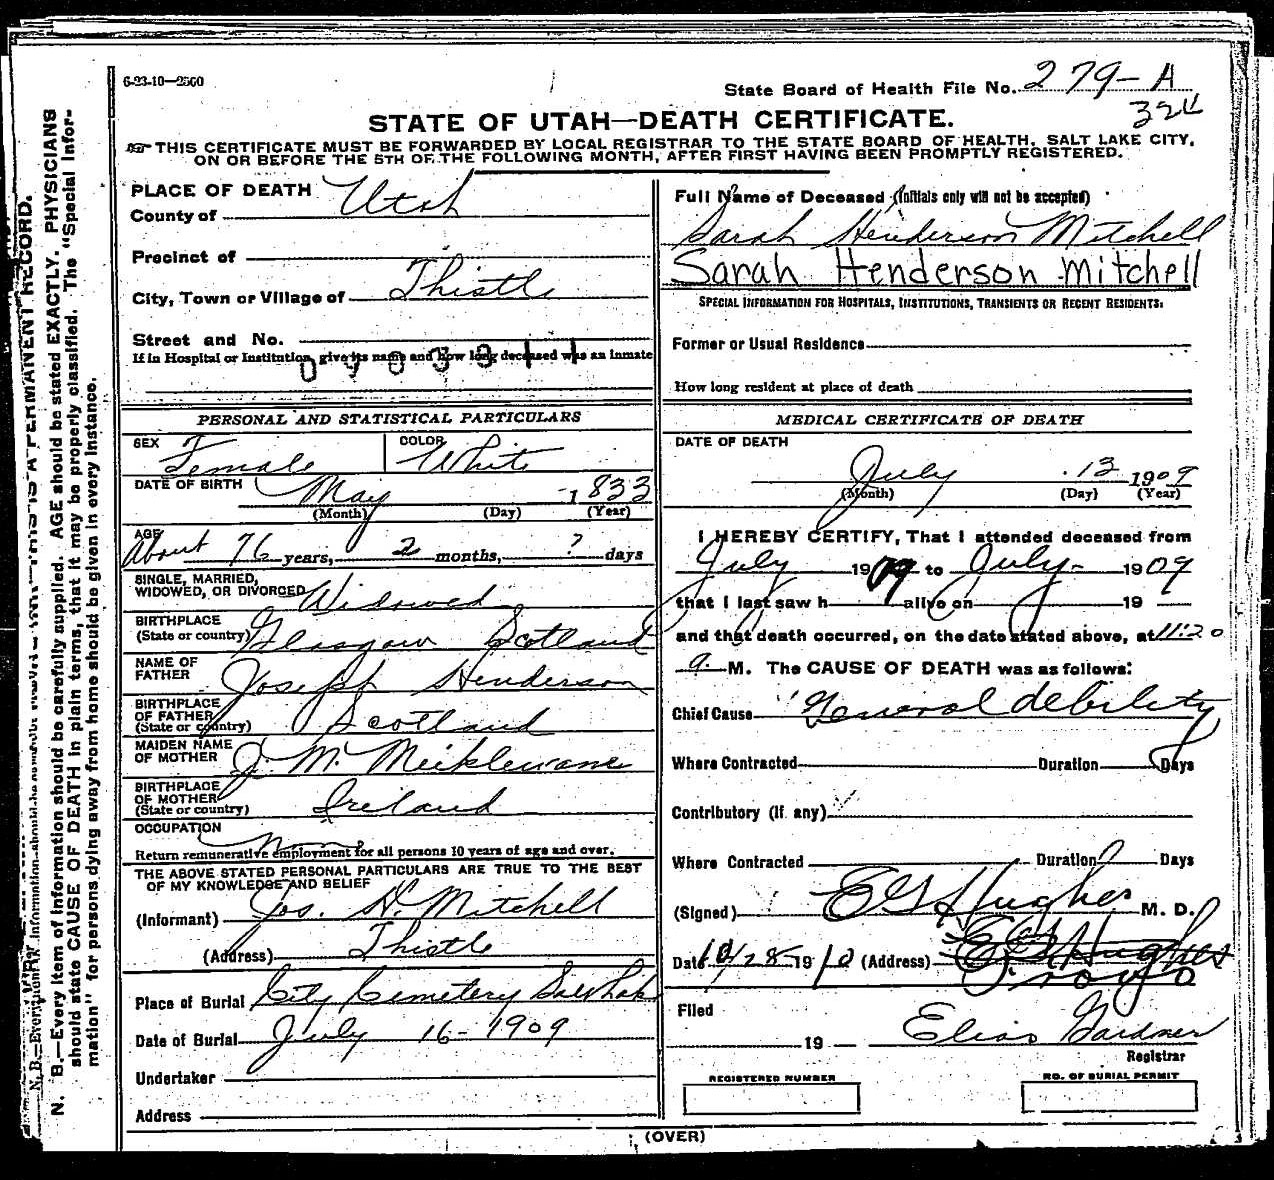 6-23-10—2500
State Board of Health File No. 279-A
324
STATE OF UTAH—DEATH CERTIFICATE.
THIS CERTIFICATE MUST BE FORWARDED BY LOCAL REGISTRAR TO THE STATE BOARD OF HEALTH, SALT LAKE CITY,
ON OR BEFORE THE 5TH OF THE FOLLOWING MONTH, AFTER FIRST HAVING BEEN PROMPTLY REGISTERED.
PLACE OF DEATH
County of Utah
Precinct of
City, Town or Village of Thistle
Street and No.
If in Hospital or Institution, give its name and how long deceased was an inmate
PERSONAL AND STATISTICAL PARTICULARS
SEX Female COLOR White
DATE OF BIRTH May 1833
(Month) (Day) (Year)
AGE About 76 years, 2 months, ? days
SINGLE, MARRIED,
WIDOWED, OR DIVORCED Widowed
BIRTHPLACE
(State or country) Glasgow Scotland
NAME OF
FATHER Joseph Henderson
BIRTHPLACE
OF FATHER
(State or country) Scotland
MAIDEN NAME
OF MOTHER J. M.
BIRTHPLACE
OF MOTHER
(State or country) Ireland
OCCUPATION
Return remunerative employment for all persons 10 years of age and over.
THE ABOVE STATED PERSONAL PARTICULARS ARE TRUE TO THE BEST
OF MY KNOWLEDGE AND BELIEF
(Informant) Jos. H. Mitchell
(Address) Thistle
Place of Burial City Cemetery Salt Lak
Date of Burial July 16-1909
Undertaker
Address
Full Name of Deceased (Initials only will not be accepted)
Sarah Henderson Mitchell
Sarah Henderson Mitchell
SPECIAL INFORMATION FOR HOSPITALS, INSTITUTIONS, TRANSIENTS OR RECENT RESIDENTS:
Former or Usual Residence
How long resident at place of death
MEDICAL CERTIFICATE OF DEATH
DATE OF DEATH
July 13 1909
(Month) (Day) (Year)
I HEREBY CERTIFY, That I attended deceased from
July 1909 to July 1909
that I last saw h alive on 19
and that death occurred, on the date stated above, at 11:20
a. M. The CAUSE OF DEATH was as follows:
Chief Cause General debility
Where Contracted Duration Days
Contributory (if any)
Where Contracted Duration ? Days
(Signed) E G Hughes M. D.
Date 10/28 1910 (Address) Provo
Filed
19 Elias Gardner
Registrar
REGISTERED NUMBER
NO. OF BURIAL PERMIT
(OVER)
N. B.—Every item of information should be carefully supplied. AGE should be stated EXACTLY. PHYSICIANS
should state CAUSE OF DEATH in plain terms, that it may be properly classified. The "Special Infor-
mation" for persons dying away from home should be given in every instance.